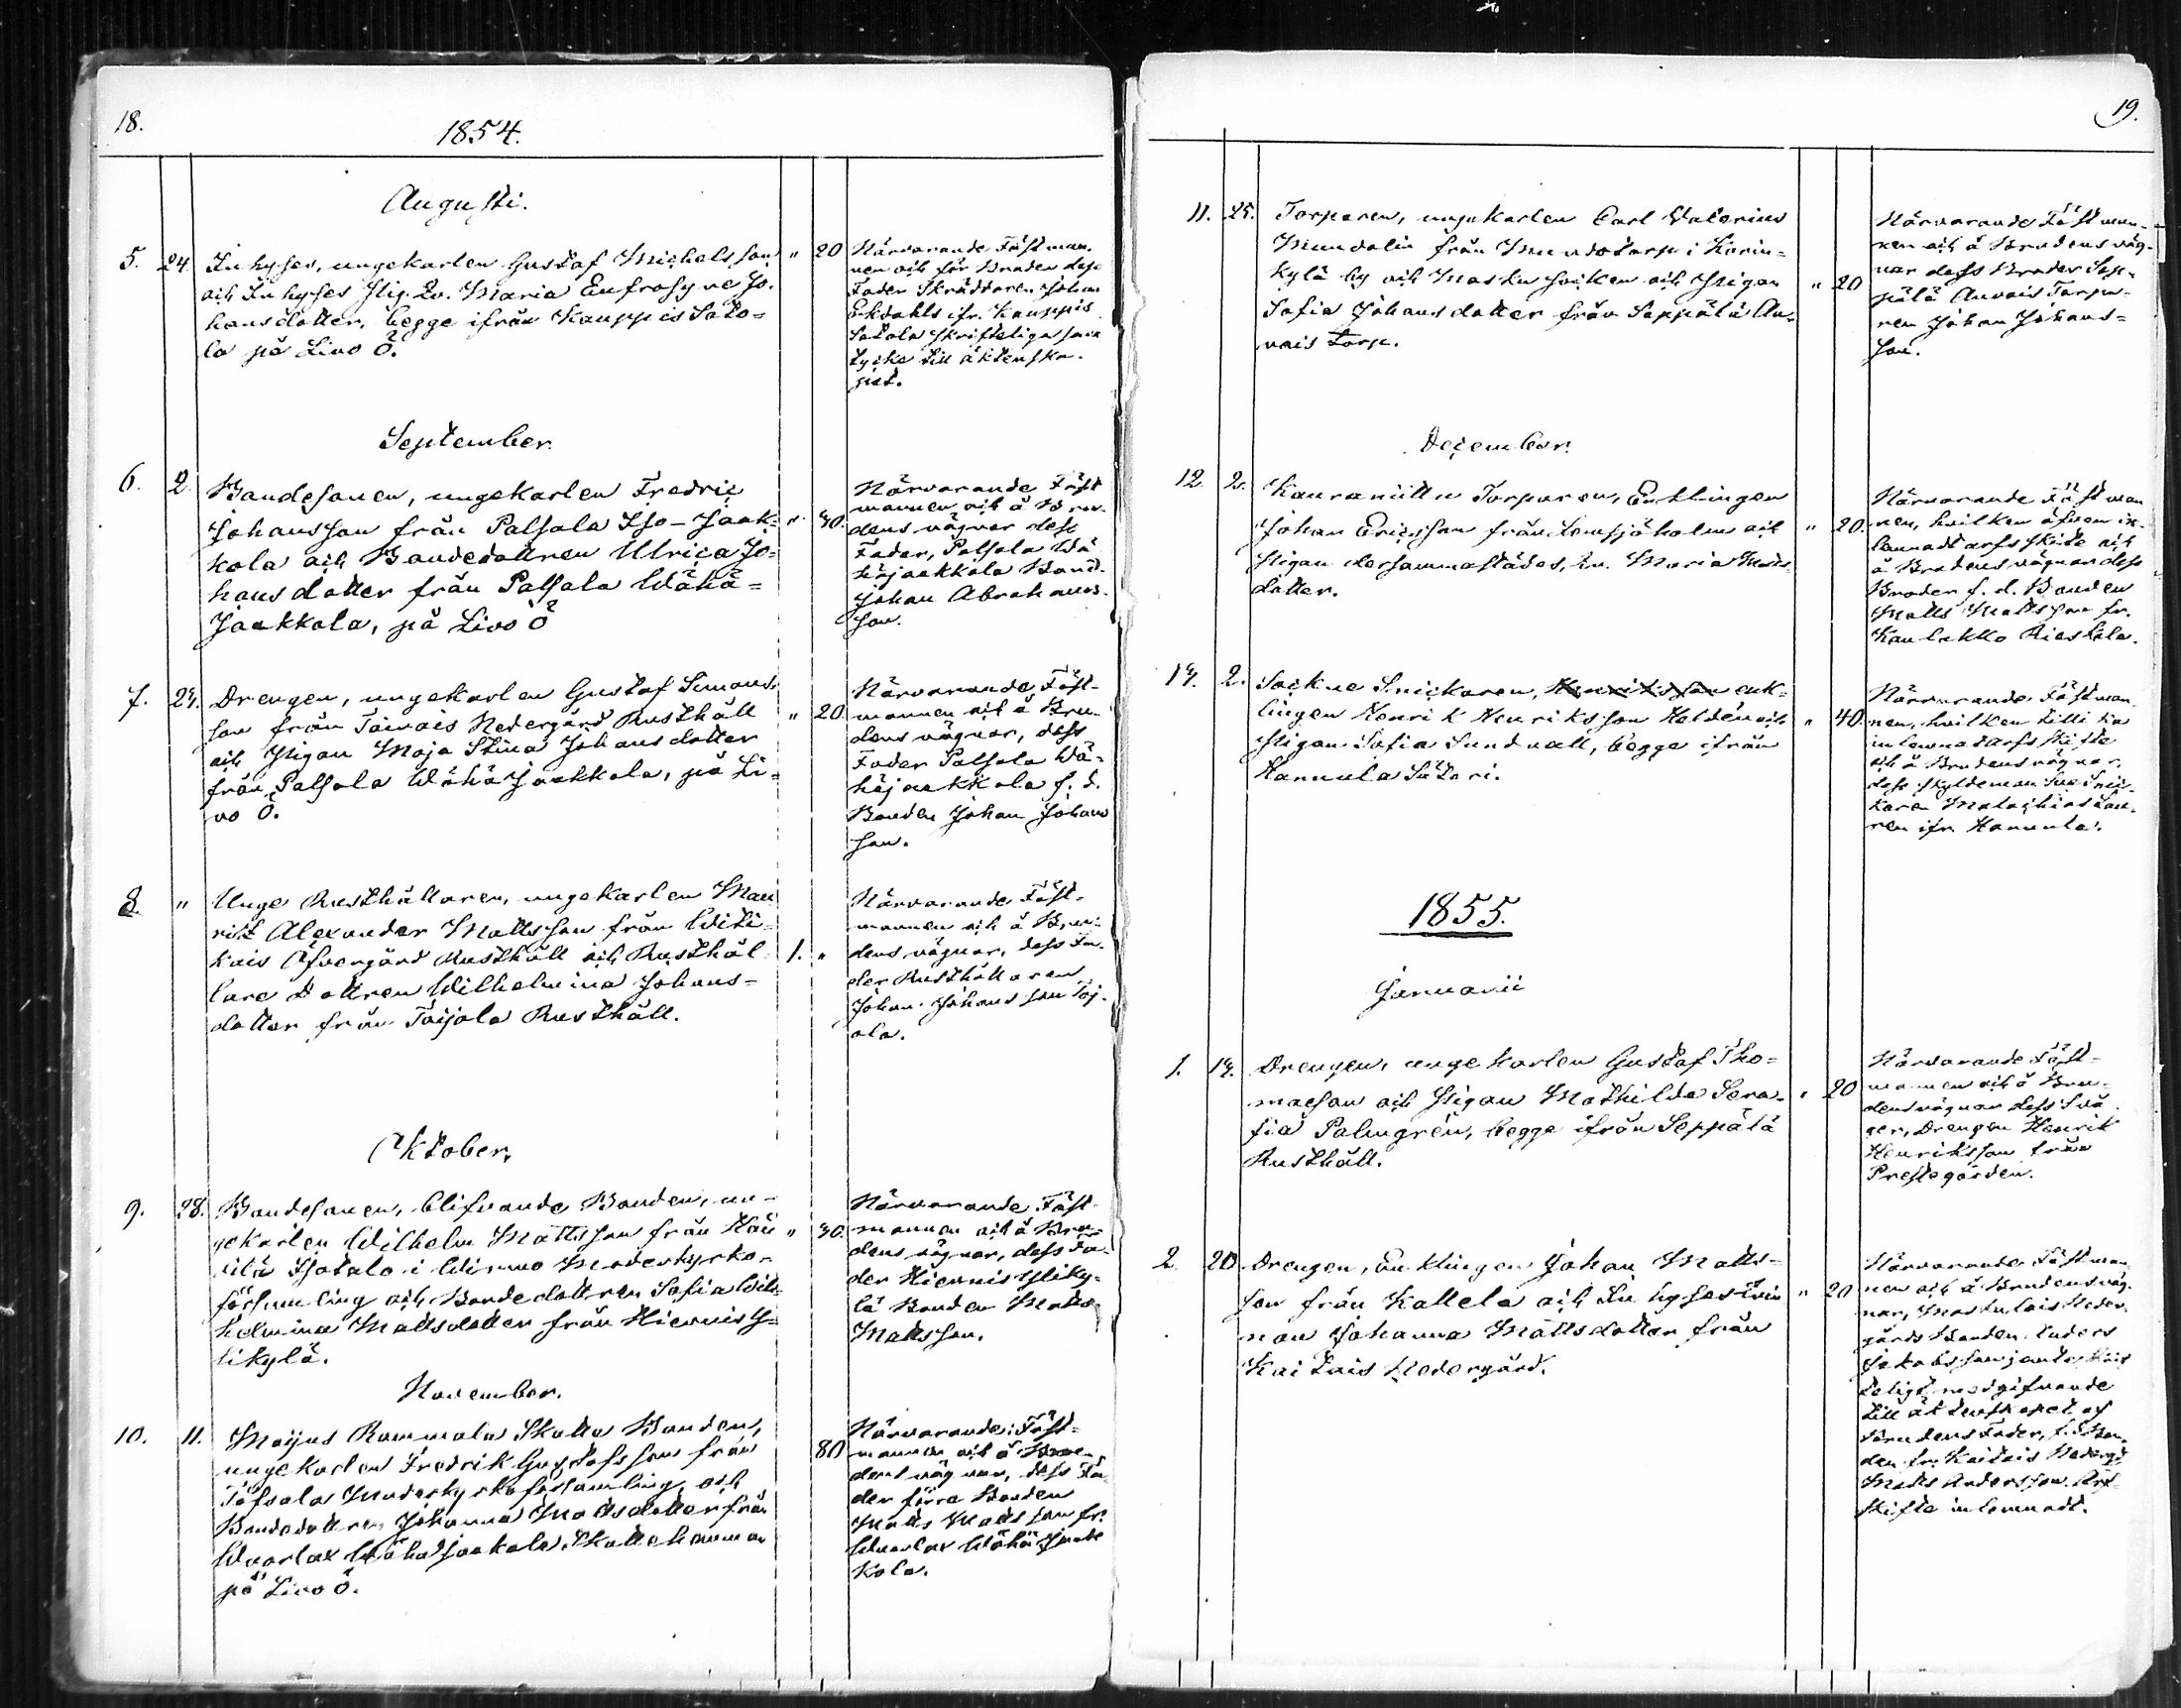 18.
1854.
Augusti.
5. 24. Inhyses, ungekarlen Gustaf Michelsson " 20
och Inhyses Pig. Qv. Maria Eufrosyne Jo-
hansdotter, begge ifrån Kauppis Sato-
la på Livo Ö.
Närvarande Fästman-
nen och för Bruden dess
Fader Skräddaren Johan
Ekdahls ifr. Kauppis
Satola skriftliga sam
tycke till äktenska-
pet.
September.
6. 2. Bondesonen, ungekarlen Fredric
Johansson från Palsala Iso-Jaak- " 40.
kola och Bondedottren Ulrica Jo-
hansdotter från Palsala Wähä-
Jaakkola, på Livo Ö
Närvarande Fäst
mannen och å Bru-
dens vägnar dess
Fader, Palsala Wä
häjaakkola Bond.
Johan Abrahams-
son.
7. 24. Drengen, ungekarlen Gustaf Simons-
son från Taivais Nedergård Rusthåll " 20.
och Pigan Maja Stina Johansdotter
från Palsala Wähä Jaakkola, på Li-
vo Ö.
Närvarande Fäst-
mannen och å Bru-
dens vägnar, dess
Fader Palsala Wä-
häjaakkola f. d.
Bonden Johan Johans
son.
8. " Unge Rusthållaren, ungekarlen Mau
ritz Alexander Mattsson från Witi-
kais Öfvergård Rusthåll och Rusthål- 1. "
lare dottren Wilhelmina Johans-
dotter från Taijala Rusthåll.
Närvarande Fäst-
mannen och å Bru-
dens vägnar, dess Fa-
der Rusthållaren
Johan Johansson Taij-
ala.
Oktober.
9. 28. Bondesonen, blifvande Bonden, un-
gekarlen Wilhelm Mattsson från " 40.
Isotalo i Wirmo Moderkyrko-
församling och Bondedottren Sofia Wil-
helmina Mattsdotter från Hiervis Y-
likylä.
Närvarande Fäst-
mannen och å Bru-
dens vägnar, dess Fa-
der Hiervis Yliky-
lä Bonden Matts
Mattsson.
November.
10. 11. Maijus Rammala Skatte Bonden,
ungekarlen Fredrik Gustafsson från 80
Töfsala Moderkyrkoförsamling, och
Bondedottren Johanna Mattsdotter från
Wuorlax Wähä Jaakola Skattehemman
på Livo Ö.
Närvarande Fäst-
mannen och å Bru-
dens vägnar, dess Fa-
der förra Bonden
Matts Mattsson fr.
Wuorlax Wähä Jaak
kola.
19.
11. 25. Torparen, ungekarlen Carl Walerius
Mundelin från Mundstorp i Karin-
kylä by och Masku socken och Pigan " 20
Sofia Johansdotter från Seppälä An-
vais Torp.
Närvarande Fästman-
nen och å Brudens väg-
nar dess Broder Sep-
pälä Anvais Torpa-
ren Johan Johans-
son.
December.
12. 2. Kauraniittu Torparen, Enklingen
Johan Ericsson från Lempjöholm och " 20.
Pigan dersammastädes, Qv. Maria Matts-
dotter.
Närvarande Fästman
nen, hvilken äfven in-
lemnadt arfskifte och
å Brudens vägnar dess
Broder f. d. Bonden
Matts Mattsson fr.
Kaulakko Riestola.
14. 2. Sockne Snickaren, Henriksson enk-
lingen Henrik Henriksson Heldén och " 40.
Pigan Sofia Sundvall, begge ifrån
Hannula Säteri.
Närvarande Fästman
nen, hvilken
inlemnadt arfskifte
och å Brudens vägnar,
dess skyldeman Soc. Snic-
karen Malachias
ren ifr. Hannula.
1855.
Januarii
1. 14. Drengen, ungekarlen Gustaf Tho-
masson och Pigan Mathilda Sera- " 20
fia Palmgrén, begge ifrån Seppälä
Rusthåll.
Närvarande Fäst-
mannen och å Bru-
dens vägnar dess Svå
ger, Drengen Henrik
Henriksson från
Prestegården.
2. 20. Drengen, Enklingen Johan Matts-
son från Kallela och Inhyses qvin " 20
nan Johanna Mattsdotter från
Kaitais Nedergård.
Närvarande Fästman
nen och å Brudens väg-
nar, Neder-
gårds Bonden Anders
Jakobsson jemte skrif
teligt medgifvande
till äktenskapet af
Brudens Fader, f. d. Bon-
den fr. Kaitais Nedergd
Matts Andersson. Arf-
skifte inlemnadt.